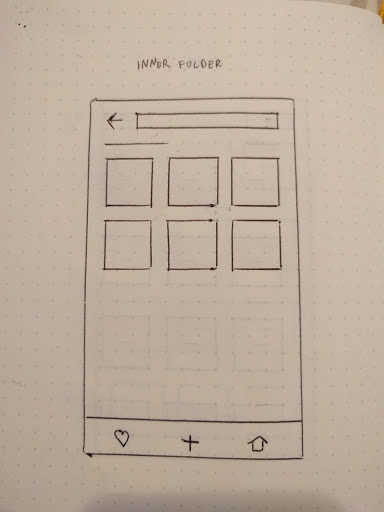 INNER FOLDER